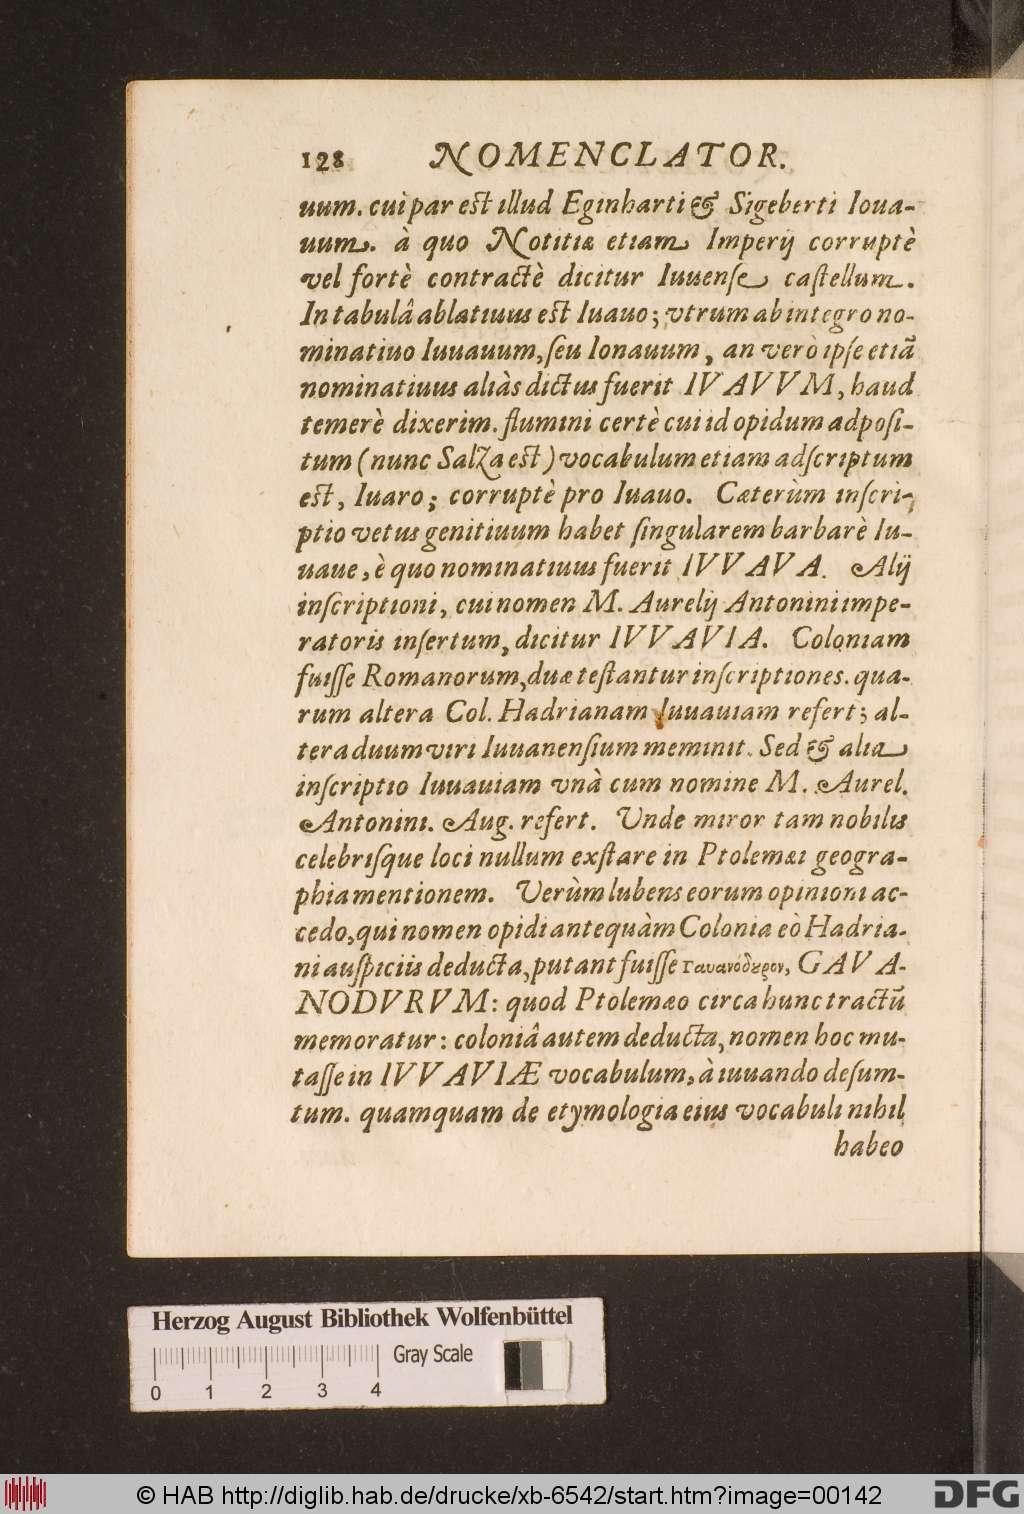 128 NOMENCLATOR.
uum. cui par est illud Eginharti & Sigeberti Ioua-
uum. à quo Notitiæ etiam Imperij corruptè
vel fortè contractè dicitur Iuuenſe caſtellum.
In tabulâ ablatiuus est Iuauo; vtrum ab integro no-
minatiuo Iuuauum, ſeu Ionauum, an verò ipſe etiã
nominatiuus aliàs dictus fuerit IVAVVM, haud
temerè dixerim. flumini certè cui id opidum adpoſi-
tum (nunc Salza est) vocabulum etiam adſcriptum
est, Iuaro; corruptè pro Iuauo. Cæterùm inſcri-
ptio vetus genitiuum habet ſingularem barbarè Iu-
uaue, è quo nominatiuus fuerit IVVAVA. Alij
inſcriptioni, cui nomen M. Aurelij Antonini impe-
ratoris inſertum, dicitur IVVAVIA. Coloniam
fuiſſe Romanorum, duæ teſtantur inſcriptiones. qua-
rum altera Col. Hadrianam Iuuauiam refert; al-
tera duum viri Iuuanenſium meminit. Sed & alia
inſcriptio Iuuauiam vnà cum nomine M. Aurel.
Antonini. Aug. refert. Unde miror tam nobilis
celebriſque loci nullum exſtare in Ptolemæi geogra-
phia mentionem. Verùm lubens eorum opinioni ac-
cedo, qui nomen opidi antequàm Colonia eò Hadria-
ni auſpiciis deducta, putant fuiſſe Γαυανόδȣρον, GAVA-
NODVRVM: quod Ptolemæo circa hunc tractũ
memoratur: coloniâ autem deducta, nomen hoc mu-
taſſe in IVVAVIÆ vocabulum, à iuuando deſum-
tum. quamquam de etymologia eius vocabuli nihil
habeo
Herzog August Bibliothek Wolfenbüttel
Gray Scale
0 1 2 3 4
© HAB http://diglib.hab.de/drucke/xb-6542/start.htm?image=00142
DFG